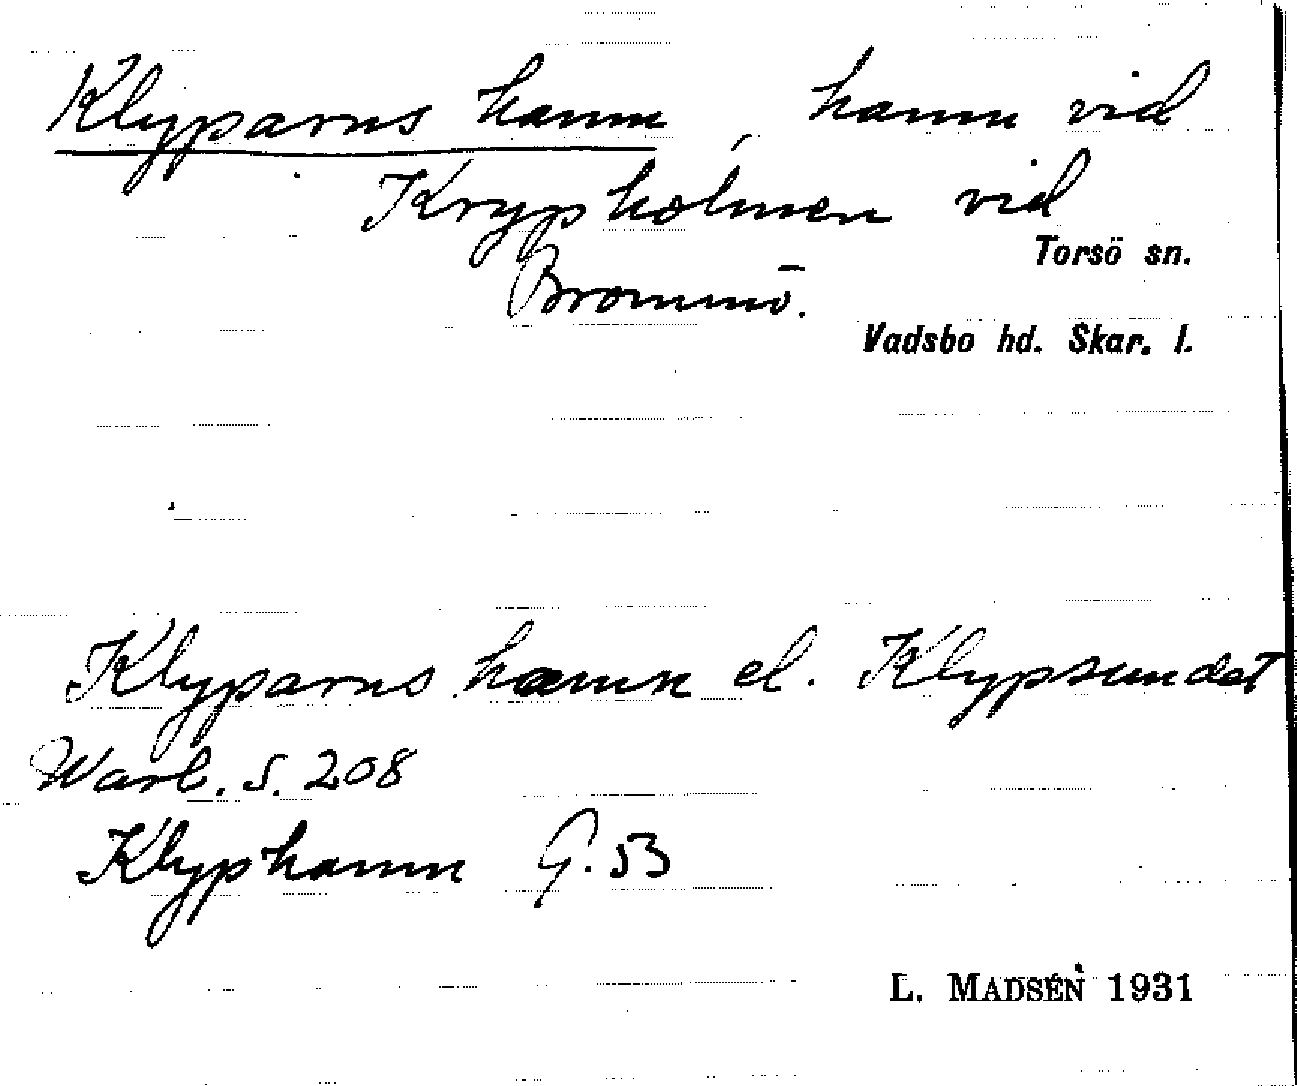 Klyparns hamn, hamn vid
Krypholmen vid
Torsö sn.
Brommö.
Vadsbo hd. Skar. l.
Klyparns hamn el. Klypsundet
Warb. s. 208
Klyphamn G. 53
L. MADSÉN 1931